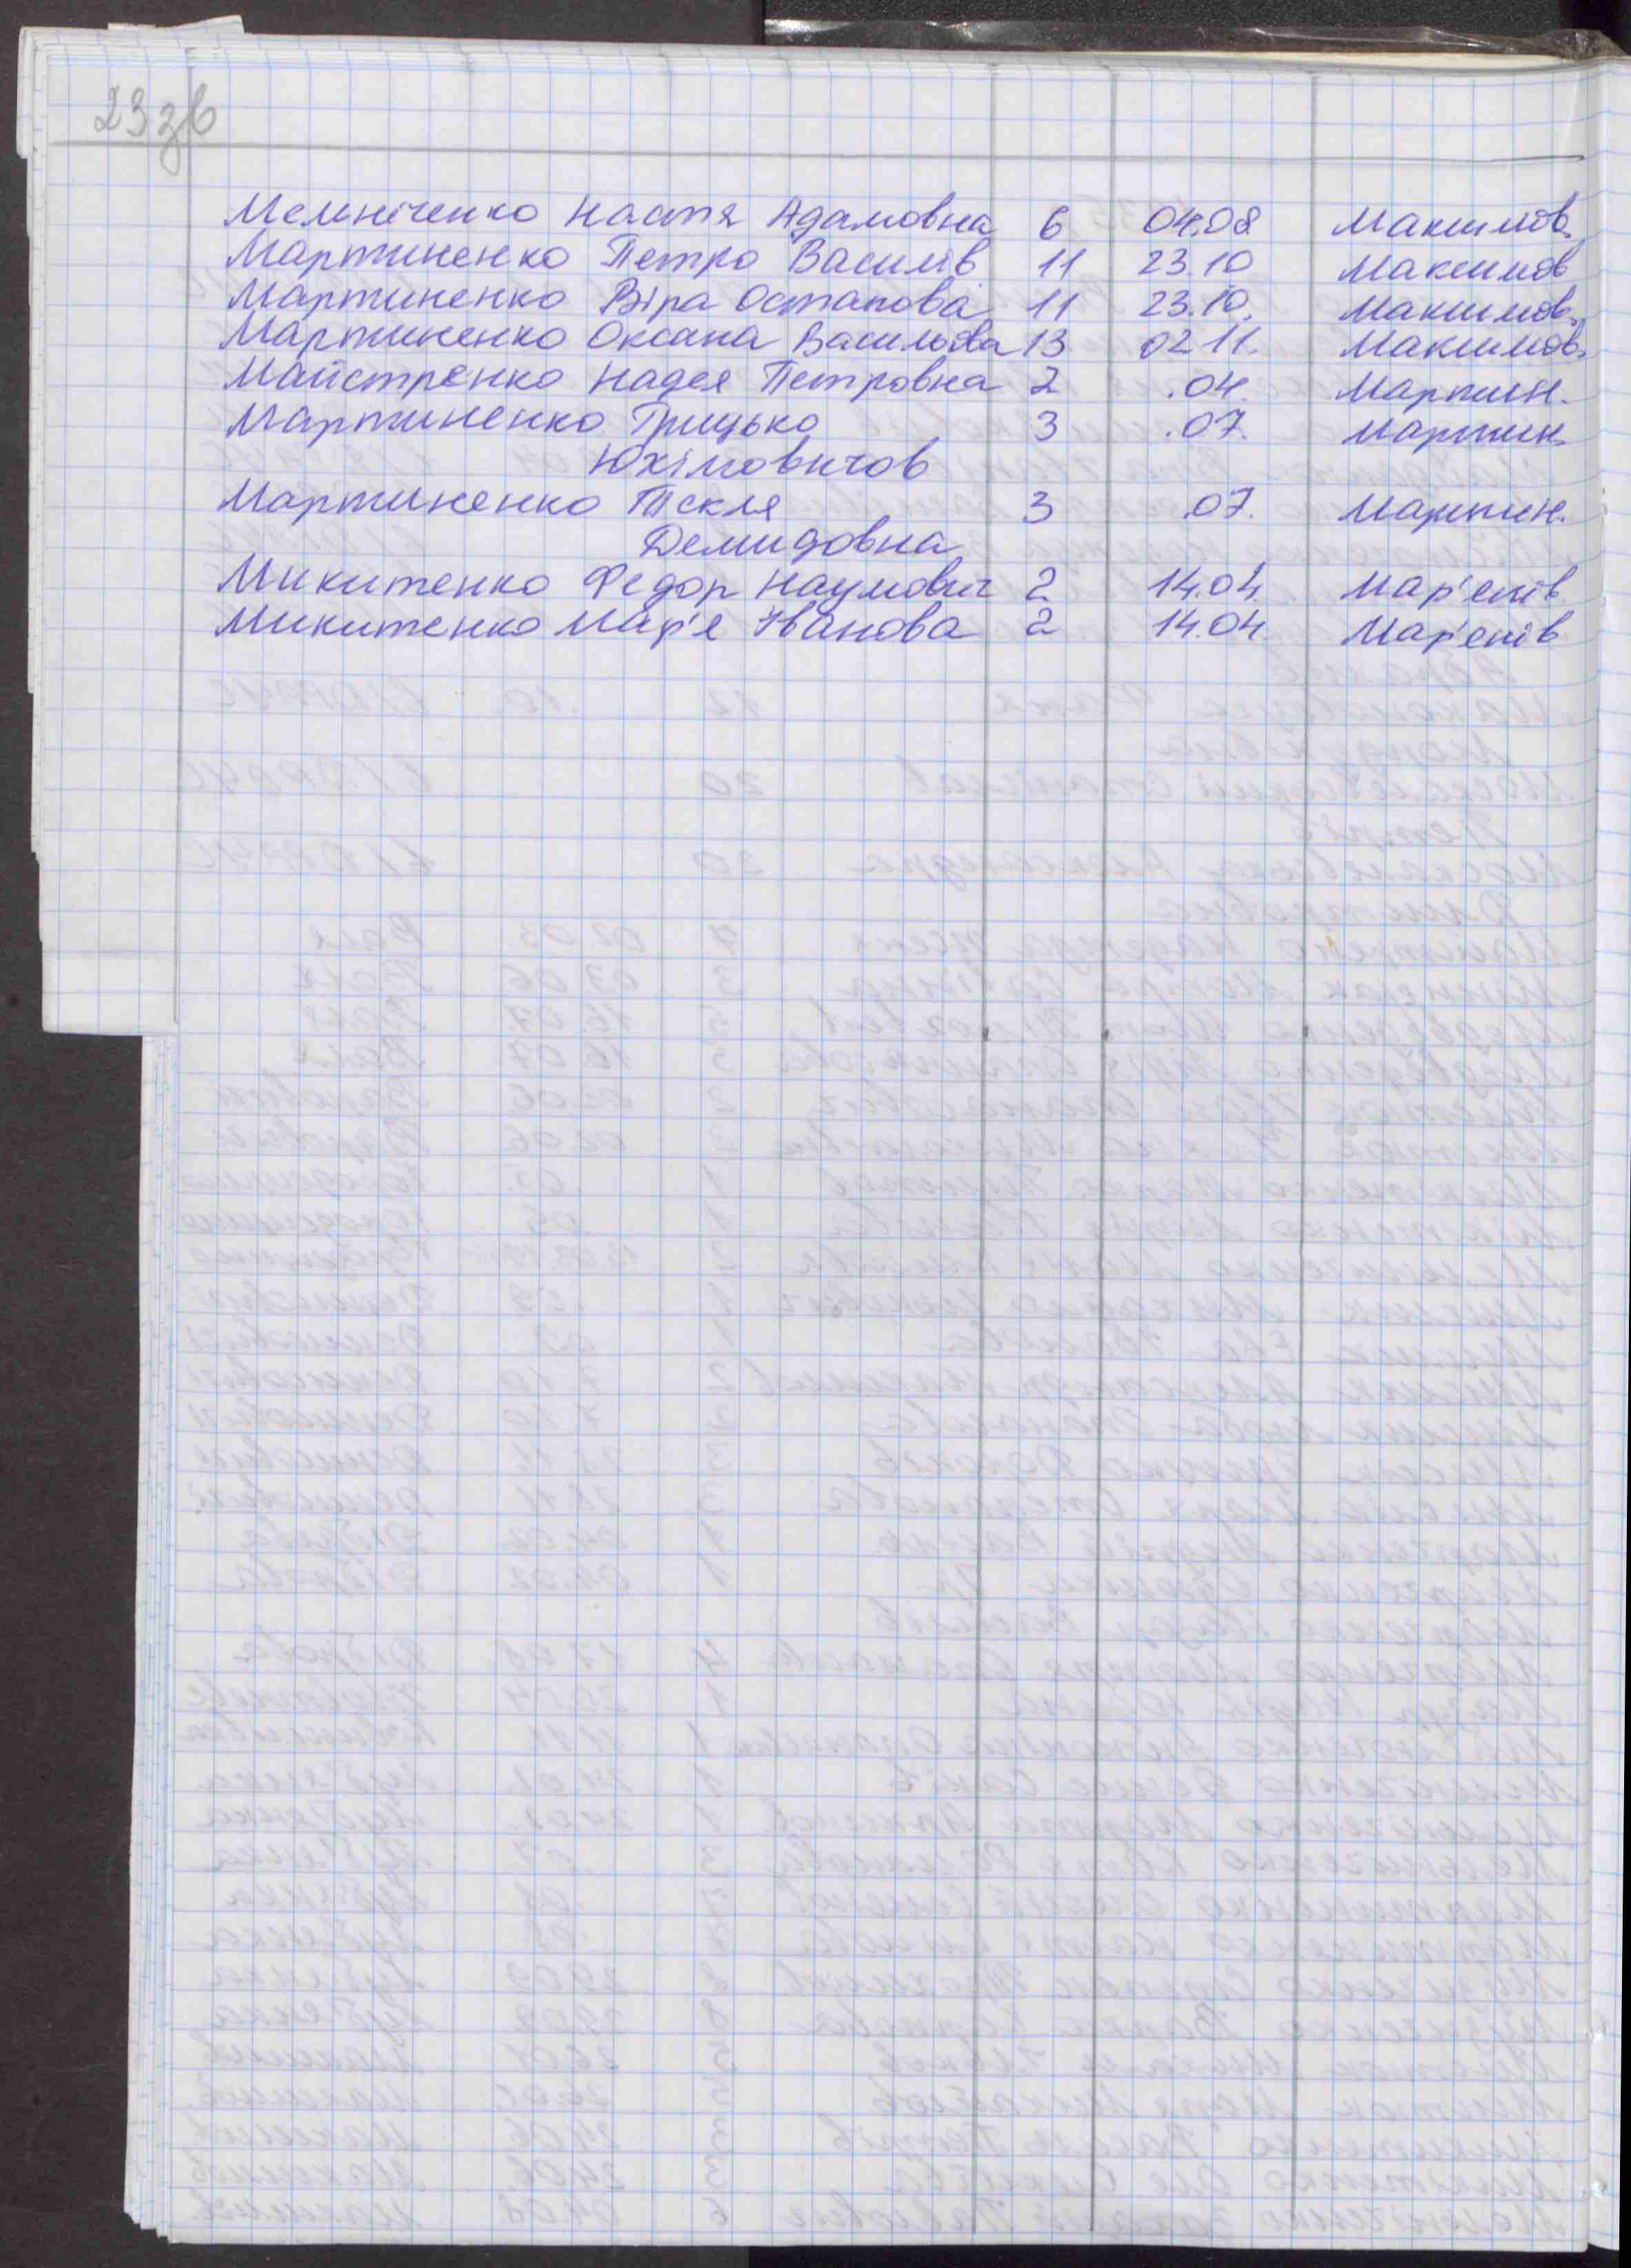 23зв
Мельніченко Настя Адамовна 6 04.08 Максимов.
Мартиненко Петро Василів 11 23.10 Максимов
Мартиненко Віра Остапова 11 23.10. Максимов.
Мартиненко Оксана Васильова 13 02 11. Максимов.
Майстренко Надея Петровна 2 .04. Мартин.
Мартиненко Грицько 3 .07. Мартин
Юхімовичов
Мартиненко Текля 3 .07. Мартин.
Демидовна
Микитенко Федор Наумович 2 14.04. Мар'енів
Микитенко Мар'е Іванова 2 14.04. Мар'енів